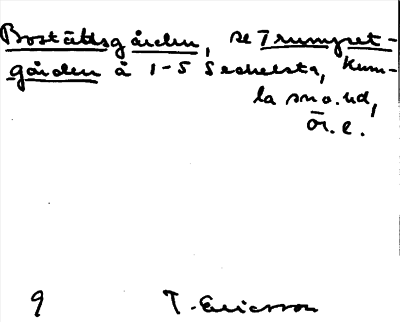 Boställsgården, se Trumpet-
gården å 1-5 Sechelsta, Kum-
la sn o. hd,
Ör. l.
9 T. Ericsson